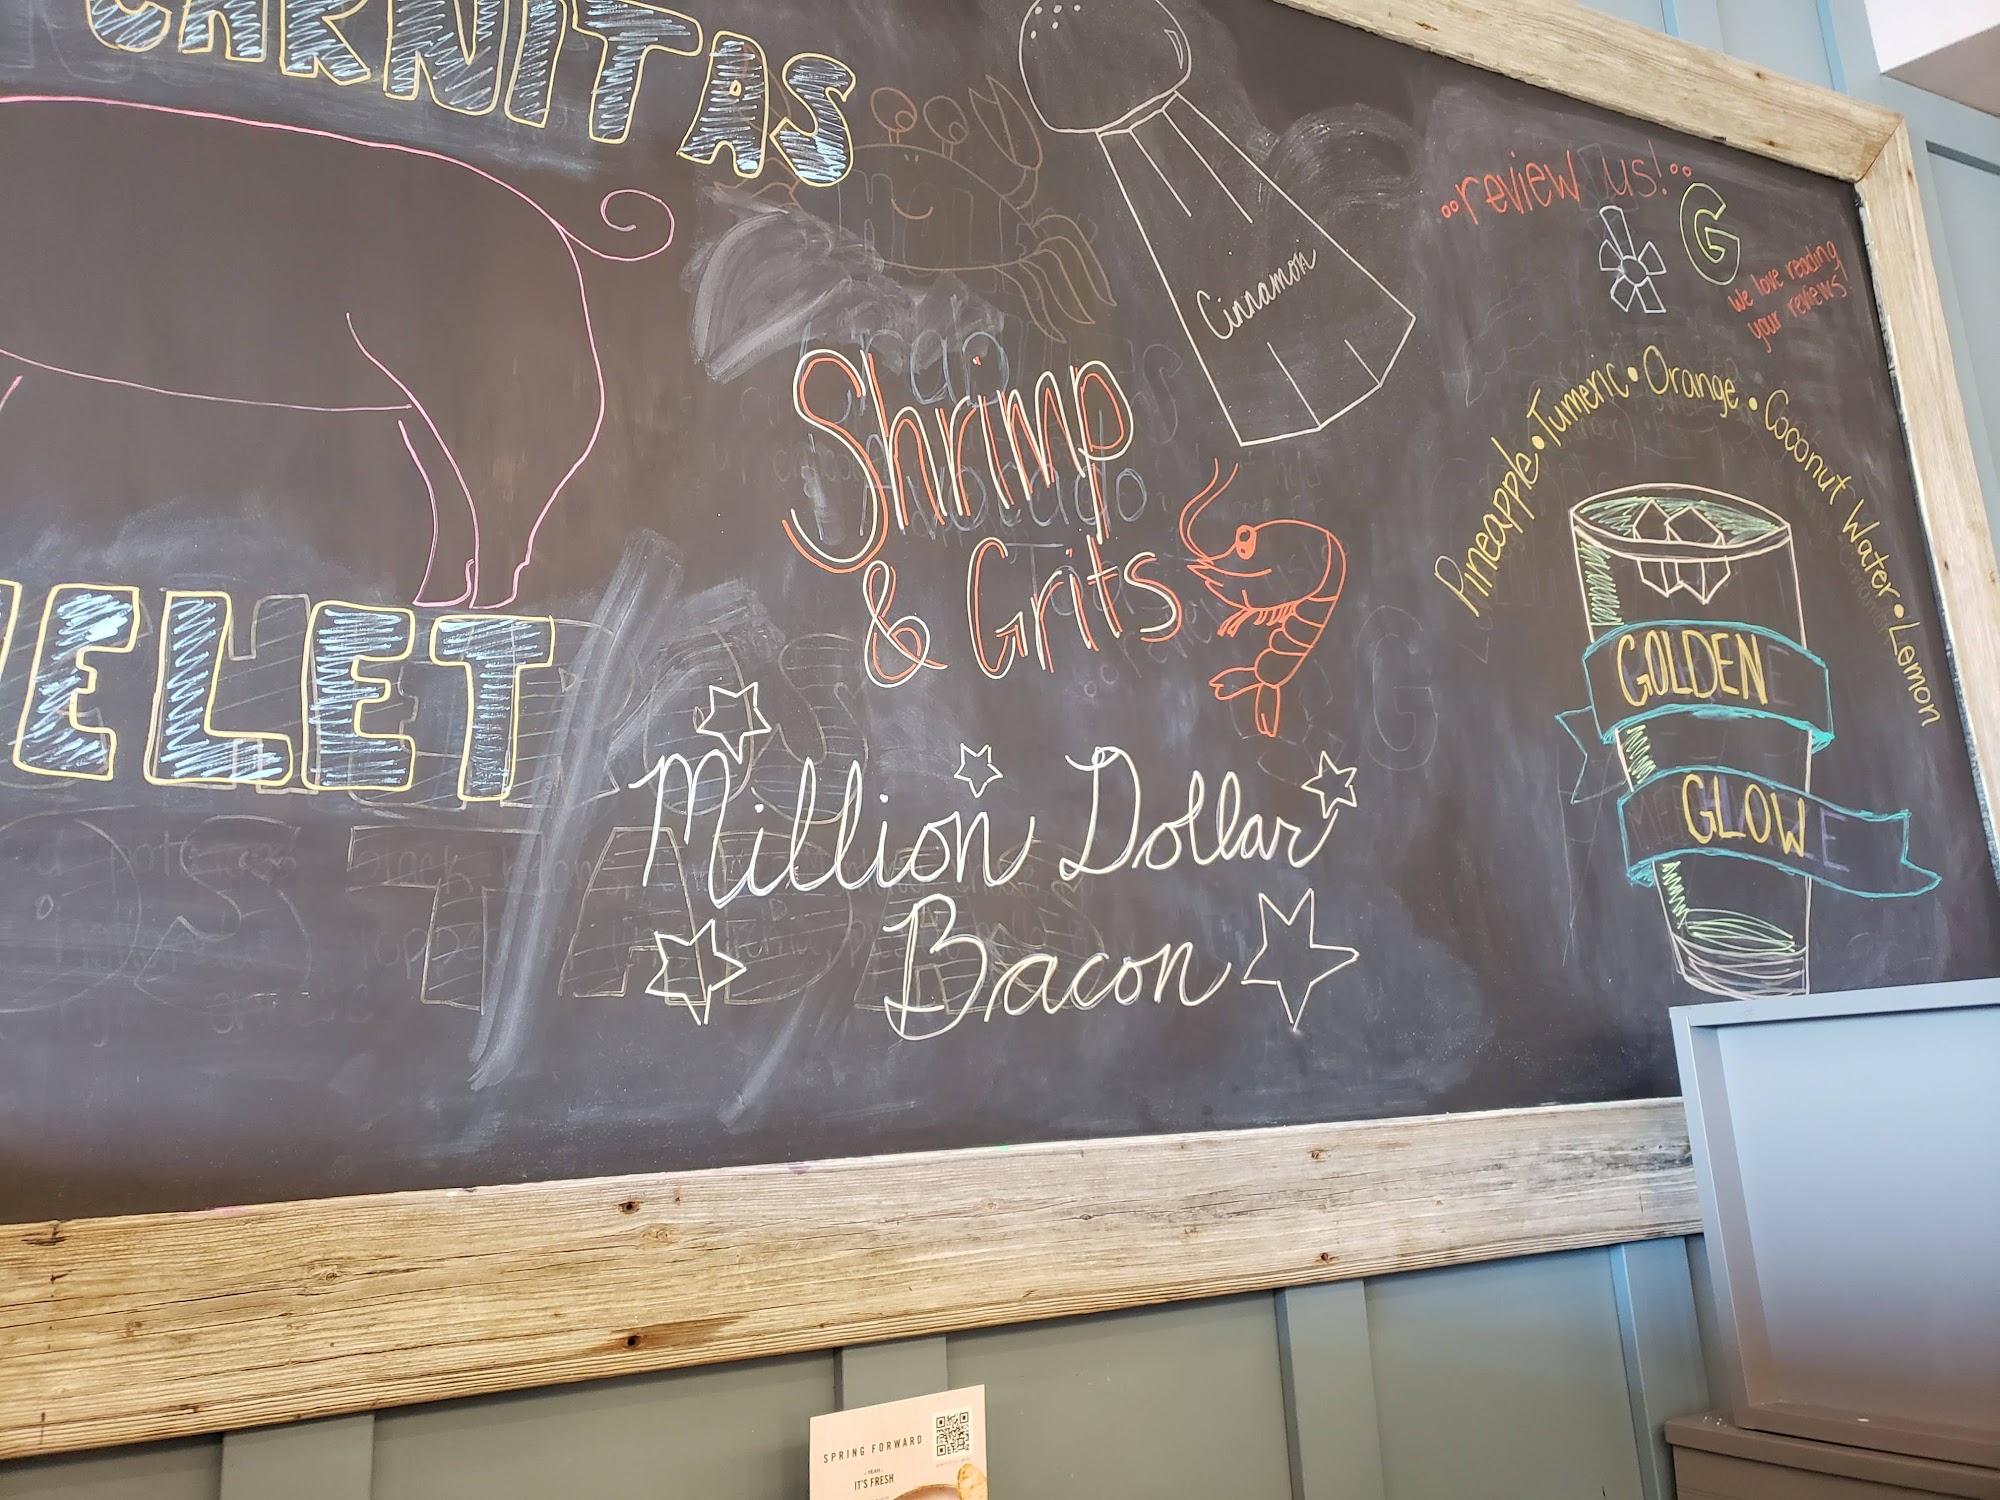 CARNITAS
ELET
Cinnamon
Shrimp
& Grits
Million Dollar
Bacon
review us!
G
We love reading
your reviews!
Pineapple • Tumeric • Orange • Coconut Water • Lemon
GOLDEN
GLOW
SPRING FORWARD
- YEAH -
IT'S FRESH